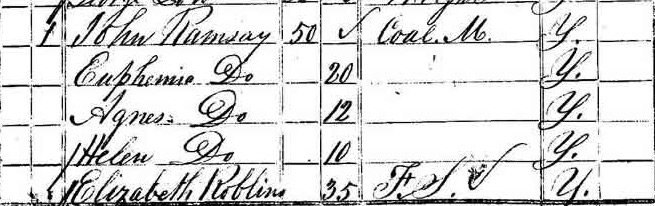 John Ramsay 50 Coal M. Y.
Euphemia Do 20 Y.
Agnes Do 12 Y.
Helen Do 10 Y.
Elizabeth Robling 35 F. S. Y.